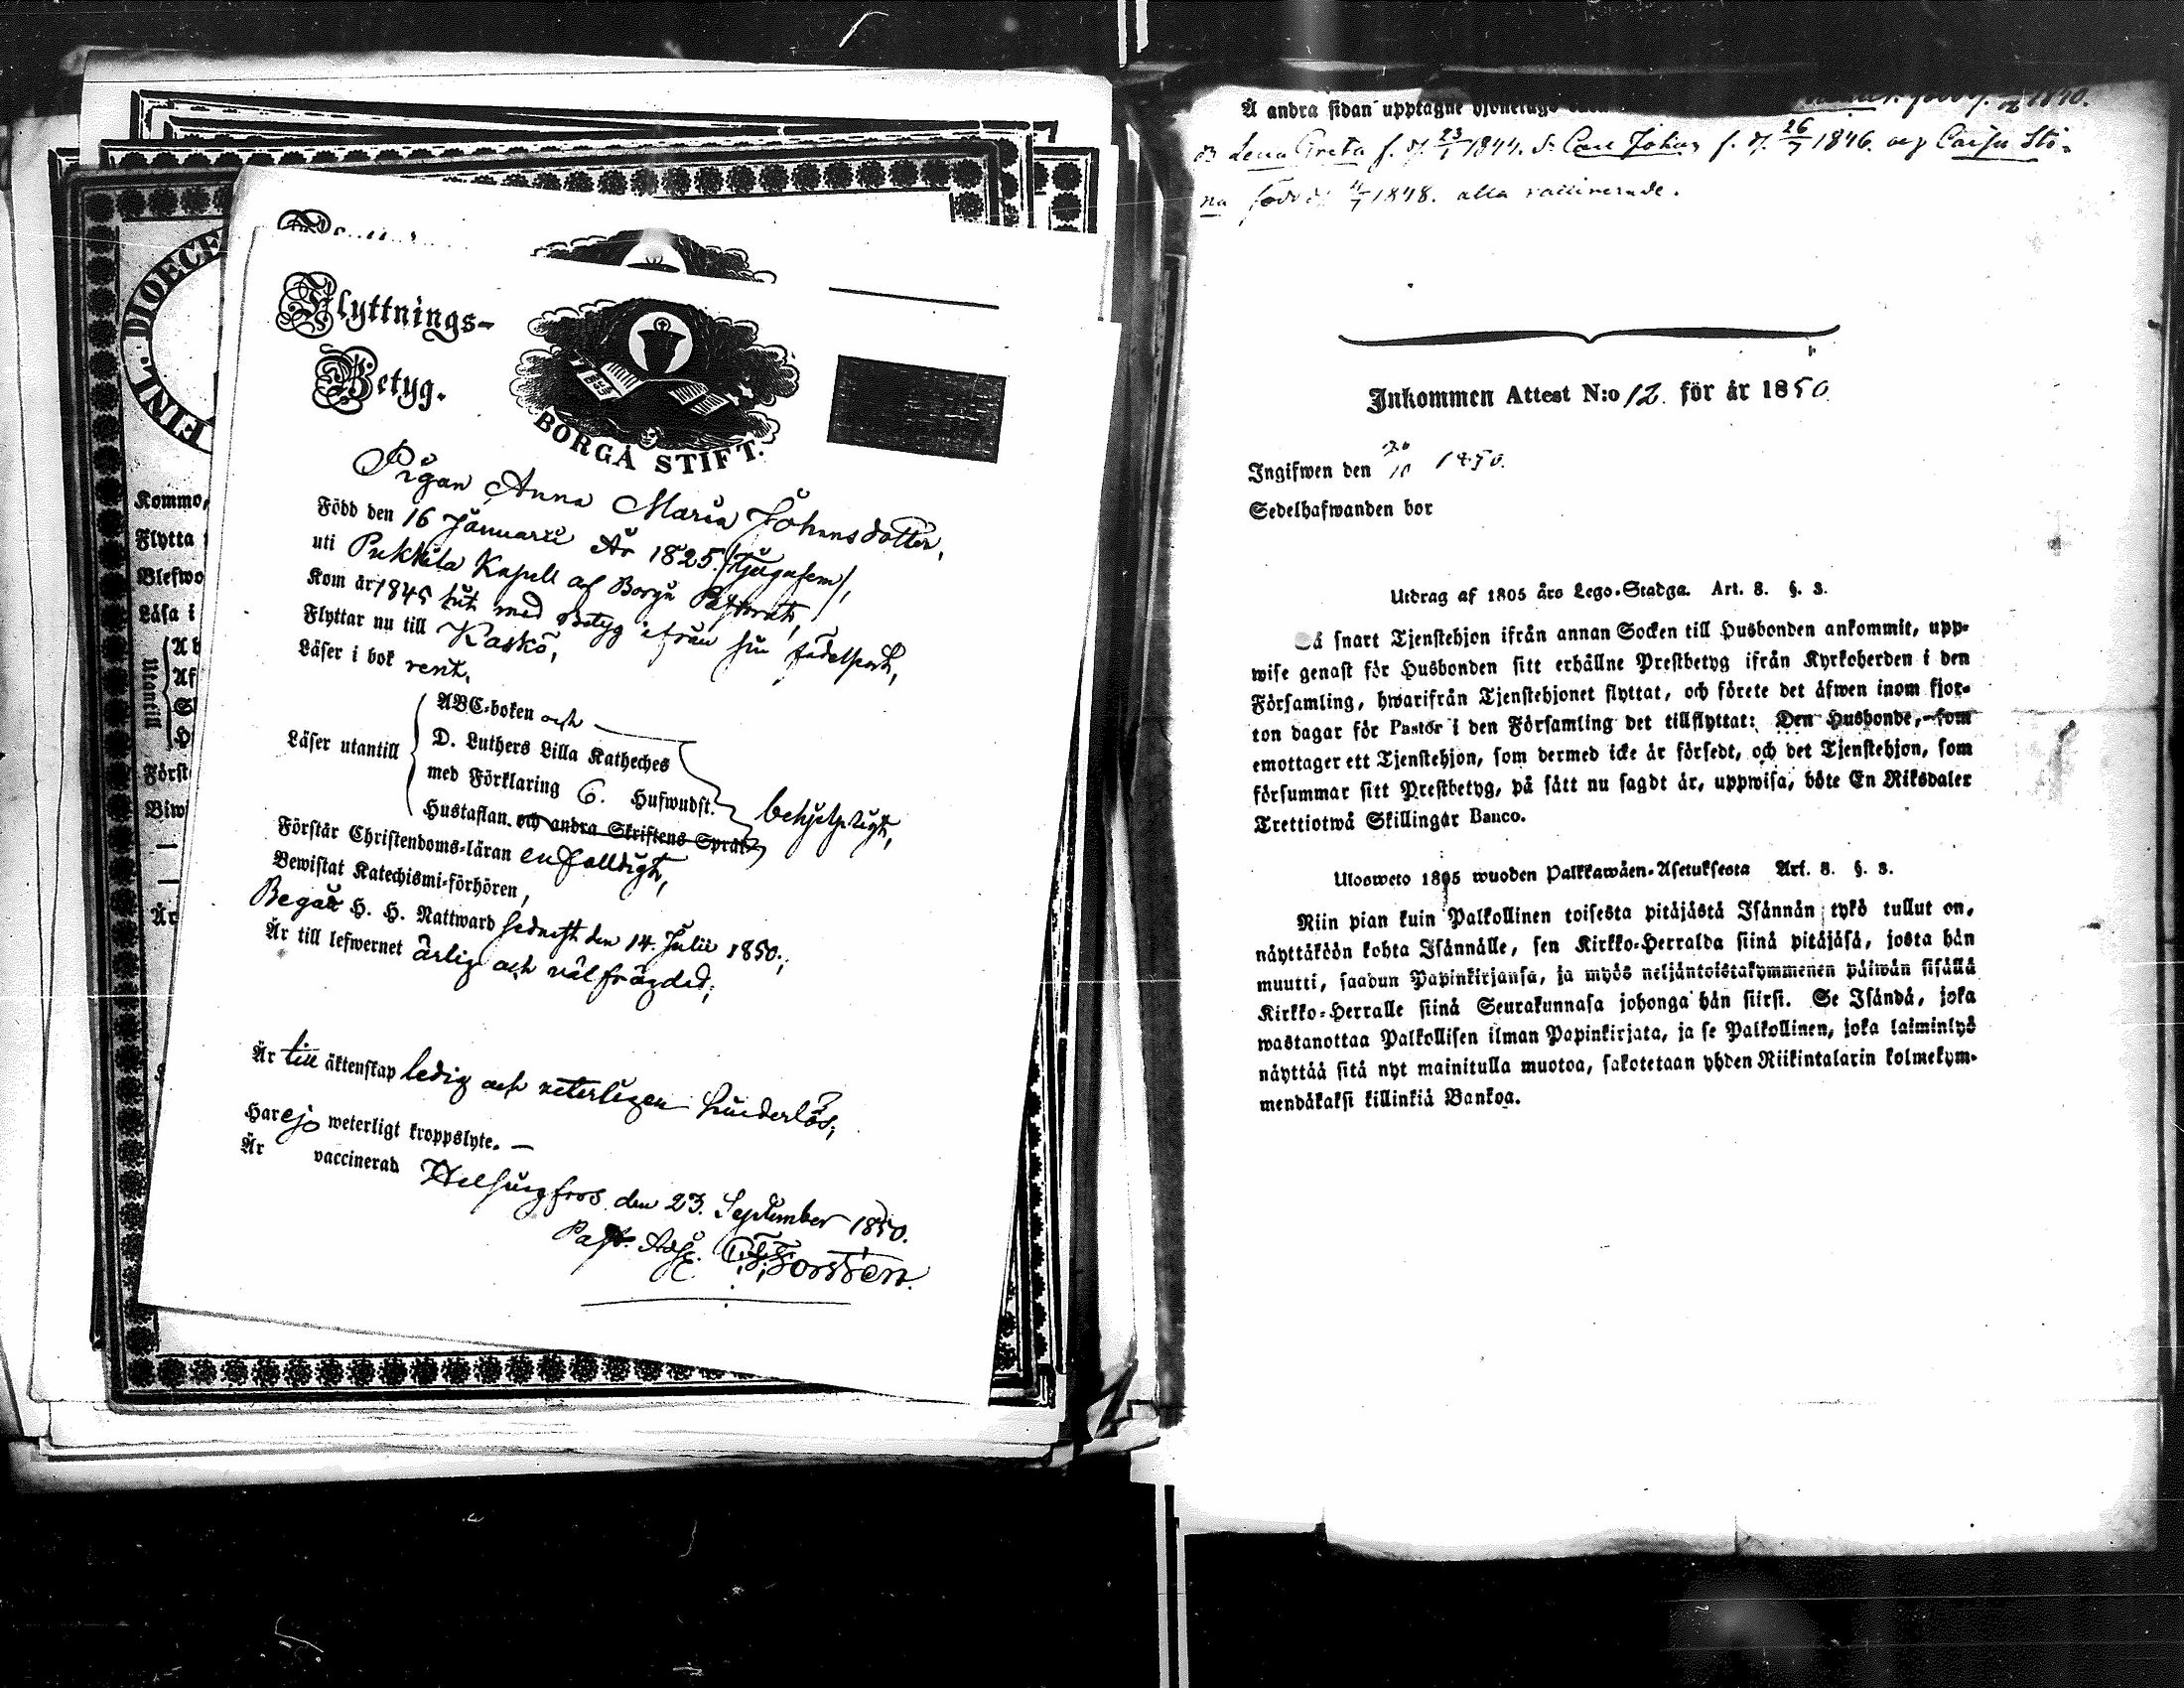 DIOECE
Kommo
Flytta
Blefwo
Läsa i
Utantill
Ab
Af
Först
Biwi
Är
Flyttnings-
Betyg.
BORGÅ STIFT.
Pigan Anna Maria Johansdotter,
Född den 16 Januarii År 1825. /Tjugufem/,
uti Pukkila Kapell af Borgå Pastorat,
Kom år 1845 hit med Betyg ifrån sin födelseort,
Flyttar nu till Kaskö,
Läser i bok rent,
Läser utantill
ABC-boken och
D. Luthers Lilla Katheches
med Förklaring 6. Hufwudst.
Hustaflan. och andra Skriftens Språk
behjelpligt,
Förstår Christendoms-läran enfalldigt,
Bewistat Katechismi-förhören,
Begår H. H. Nattward sednast den 14. Julii 1850;
Är till lefwernet ärlig och välfrägdad;
Är till äktenskap ledig och veterligen hinderlös;
Har ej weterligt kroppslyte. —
Är vaccinerad
Helsingfors den 23. September 1850.
Past. Adj. Forstén.
Å andra sidan upptagne 1840.
Lena Greta f. d. 23/1 1844. Carl Johan f. d. 26/7 1846. och Cajsa Sti-
na född d. 1848. alla vaccinerade.
Inkommen Attest N:o 12 för år 1850
Ingifwen den 20/10 1850.
Sedelhafwanden bor
Utdrag af 1805 års Lego-Stadga. Art. 8. §. 3.
Så snart Tjenstehjon ifrån annan Socken till Husbonden ankommit, upp-
wise genast för Husbonden sitt erhållne Prestbetyg ifrån Kyrkoherden i den
Församling, hwarifrån Tjenstehjonet flyttat, och förete det äfwen inom fjor-
ton dagar för Pastor i den Församling det tillflyttat: Den Husbonde, som
emottager ett Tjenstehjon, som dermed icke är försedt, och det Tjenstehjon, som
försummar sitt Prestbetyg, på sätt nu sagdt är, uppwisa, böte En Riksdaler
Trettiotwå Skillingar Banco.
Ulosweto 1805 wuoden Palkkawäen-Asetuksesta Art. 8. §. 3.
Niin pian kuin Palkollinen toisesta pitäjästä Isännän tykö tullut on,
näyttäköön kohta Isännälle, sen Kirkko-Herralda siinä pitäjäsä, josta hän
muutti, saadun Papinkirjansa, ja myös neljäntoistakymmenen päiwän sisällä
Kirkko-Herralle siinä Seurakunnasa johonga hän siirsi. Se Isändä, joka
wastanottaa Palkollisen ilman Papinkirjata, ja se Palkollinen, joka laiminlyö
näyttää sitä nyt mainitulla muotoa, sakotetaan yhden Riikintalarin kolmekym-
mendäkaksi killinkiä Bankoa.